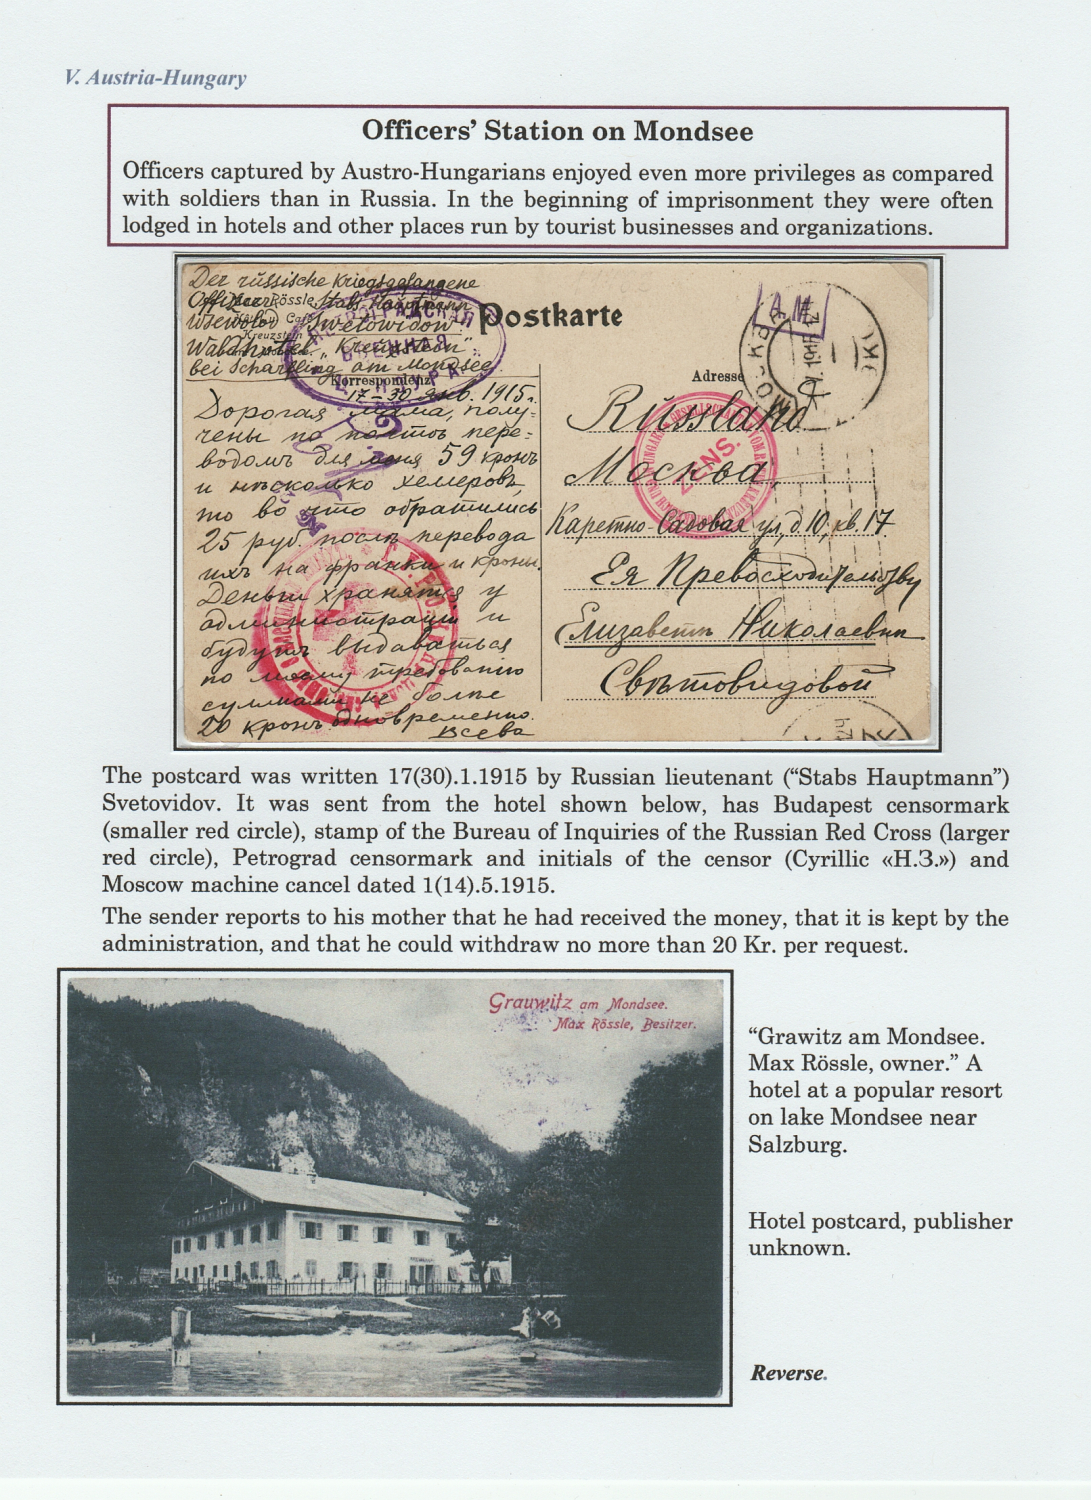 V. Austria-Hungary
Officers' Station on Mondsee
Officers captured by Austro-Hungarians enjoyed even more privileges as compared
with soldiers than in Russia. In the beginning of imprisonment they were often
lodged in hotels and other places run by tourist businesses and organizations.
Der russische Kriegsgefangene
Offizier Stabs Hauptmann
Wsewolod "Swetowidow"
Waldhotel "Kreuzstein"
bei Scharfling am Mondsee
Postkarte
Korrespondenz
Adresse
17-30 янв. 1915 г.
Дорогая мама, полу-
чены по почтѣ пере-
водомъ для меня 59 кронъ
и нѣсколько хелеровъ,
то во что обратились
25 руб. послѣ перевода
ихъ на франки и кроны.
Деньги хранятся у
администраціи и
будутъ выдаваться
по моему требованію
суммами не болѣе
20 кронъ одновременно.
Всева
Russland
Москва
Каретно-Садовая ул, д. 10, кв. 17
Ея Превосходительству
Елизаветѣ Николаевнѣ
Свѣтовидовой
ZENS.
The postcard was written 17(30).1.1915 by Russian lieutenant (“Stabs Hauptmann”)
Svetovidov. It was sent from the hotel shown below, has Budapest censormark
(smaller red circle), stamp of the Bureau of Inquiries of the Russian Red Cross (larger
red circle), Petrograd censormark and initials of the censor (Cyrillic «Н.З.») and
Moscow machine cancel dated 1(14).5.1915.
The sender reports to his mother that he had received the money, that it is kept by the
administration, and that he could withdraw no more than 20 Kr. per request.
Grauwitz am Mondsee.
Max Rössle, Besitzer.
“Grawitz am Mondsee.
Max Rössle, owner.” A
hotel at a popular resort
on lake Mondsee near
Salzburg.
Hotel postcard, publisher
unknown.
Reverse.